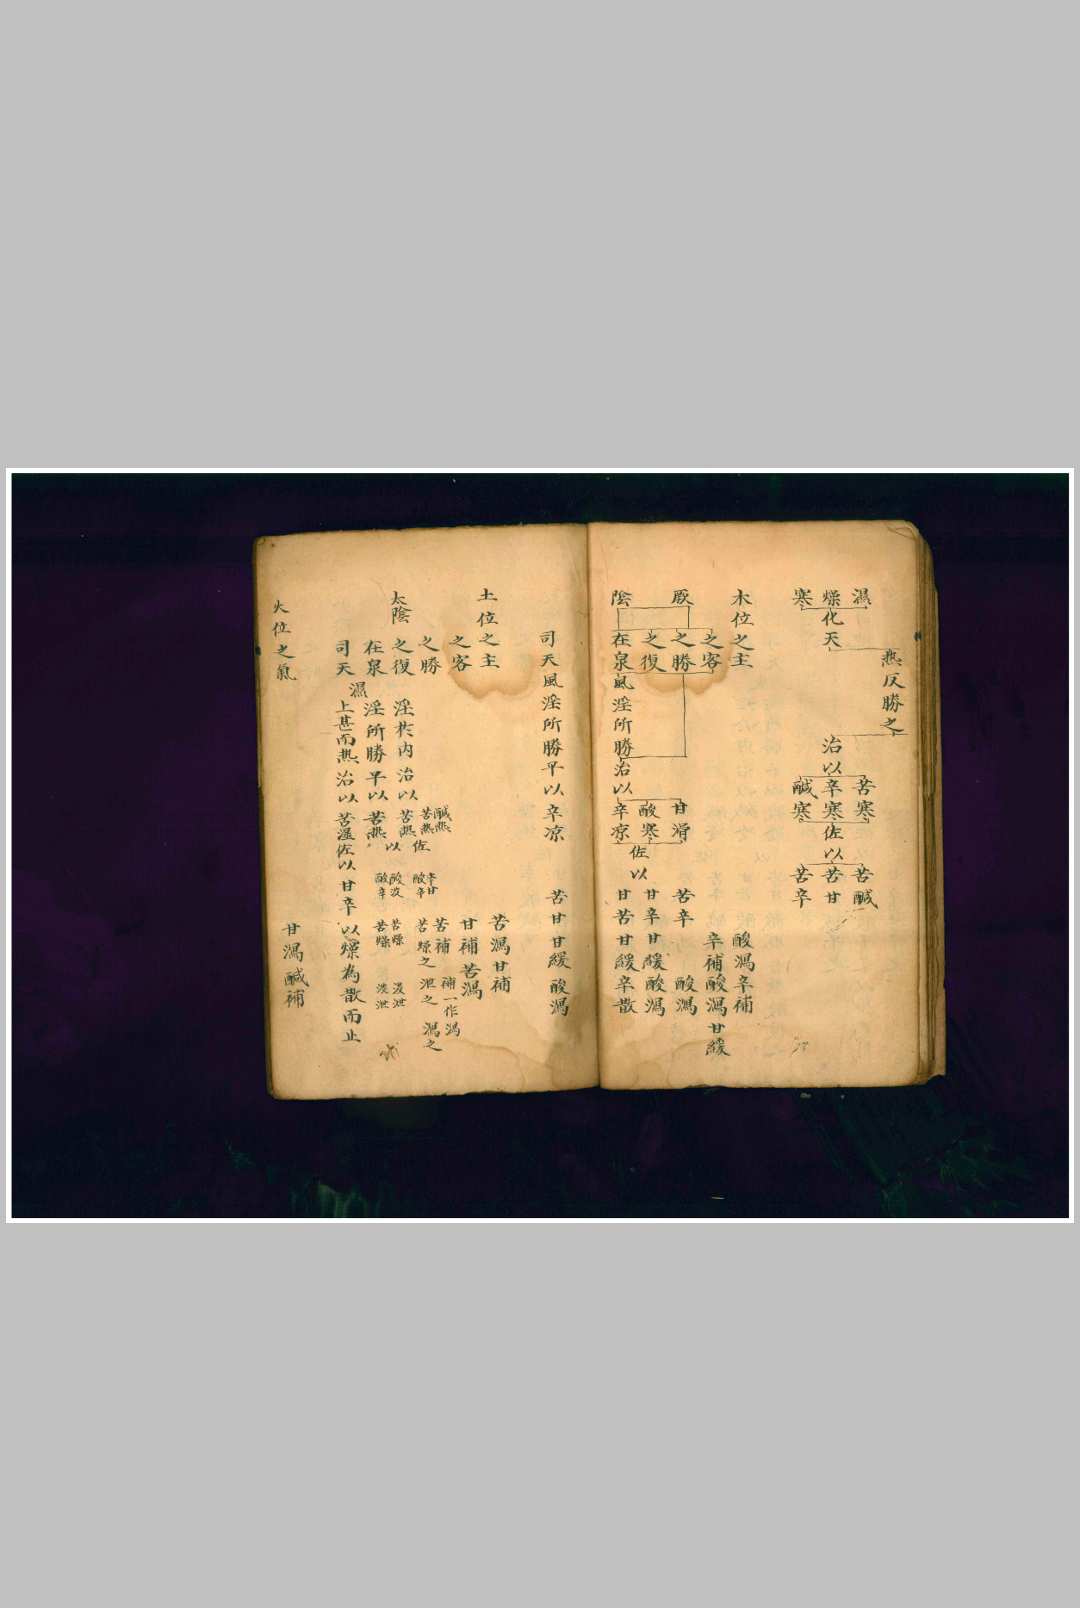 濕 治以 苦寒 佐以 苦鹹
熱反勝之
燥化天 辛寒 苦甘
寒 鹹寒 苦辛
木位之主 酸瀉辛補
之客 辛補酸瀉甘緩
厥 之勝 甘滑 苦辛 酸瀉
之復 酸寒 佐以 甘辛甘緩酸瀉
陰 在泉風淫所勝治以辛凉 甘苦甘緩辛散
司天風淫所勝平以辛凉 苦甘甘緩酸瀉
土位之主 苦瀉甘補
之客 甘補苦瀉
之勝 鹹熱 辛甘 苦補 補一作瀉
苦熱 佐 酸辛 苦燥之 泄之 瀉之
太陰 之復 淫於内治以苦熱 以 酸淡 苦燥 淡泄
在泉 淫所勝平以苦熱 酸辛 苦燥 淡泄
濕
司天 上甚而熱治以苦溫佐以甘辛以燥為散而止
火位之氣 甘瀉鹹補